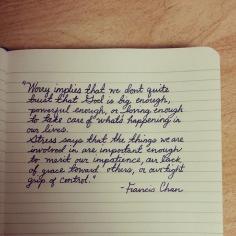 "Worry implies that we don't quite
trust that God is big enough,
powerful enough, or loving enough
to take care of what's happening in
our lives.
Stress says that the things we are
involved in are important enough
to merit our impatience, our lack
of grace toward others, or our tight
grip of control."
- Francis Chan